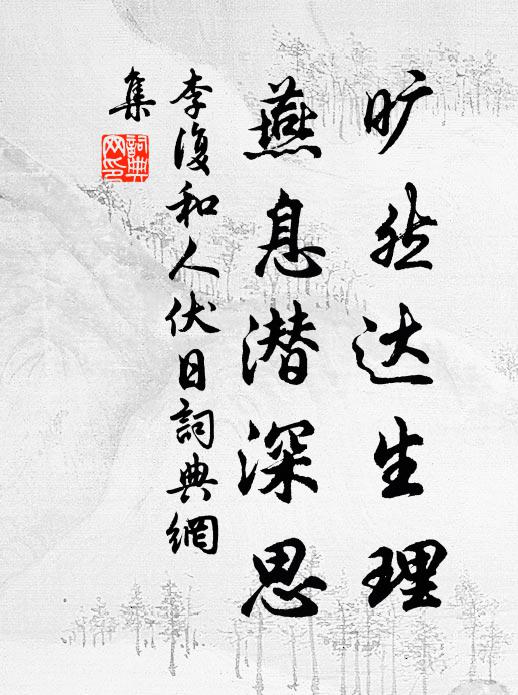 旷然达生理
燕息潜深思
李復和人伏日詞典網
集
詞典網印